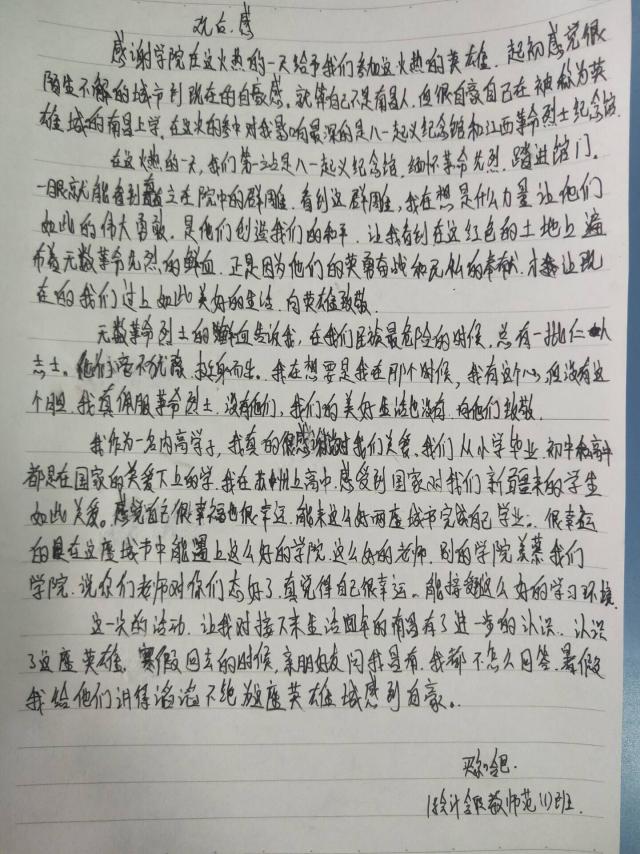 观后感
感谢学院在这火热的一天给予我们参加这火热的英雄. 起初感觉很
陌生不解的城市到现在的自豪感. 就算自己不是南昌人. 但很自豪自己在被称为英
雄城的南昌上学. 在这火的冬中对我影响最深的是八一起义纪念馆和江西革命烈士纪念馆.
在这火热的一天, 我们第一站点是八一起义纪念馆. 缅怀革命先烈. 踏进馆门.
一眼就能看到矗立在院中的群雕. 看到这群雕, 我在想是什么力量让他们
如此的伟大勇敢. 是他们创造我们的和平. 让我看到在这红色的土地上遍
布着无数革命先烈的鲜血. 正是因为他们的英勇奋战和无私的奉献. 才让现
在的我们过上如此美好的生活. 向英雄致敬.
无数革命烈士的鲜血告诉我, 在我们民族最危险的时候. 总有一批仁人
志士. 他们毫不犹豫. 挺身而出. 我在想要是我在那个时候, 我有这个心, 但没有这
个胆. 我真佩服革命烈士. 没有他们, 我们的美好生活也没有. 向他们致敬.
我作为一名内高学子, 我真的很感谢对我们关爱. 我们从小学毕业. 初中和高中
都是在国家的关爱下上的学. 我在苏州上高中. 感受到国家对我们新疆来的学生
如此关爱. 感觉自己很幸福也很幸运. 能来这么好两座城市完成自己学业. 很幸运
的是在这座城市中能遇上这么好的学院. 这么好的老师. 别的学院羡慕我们
学院. 说你们老师对你们太好了. 真觉得自己很幸运. 能接受这么好的学习环境.
这一次的活动. 让我对接下来生活四年的南昌有了进一步的认识. 认识
了这座英雄. 寒假回去的时候. 亲朋好友问我昌有. 我都不怎么回答. 暑假
我给他们讲得滔滔不绝为这座英雄城感到自豪.